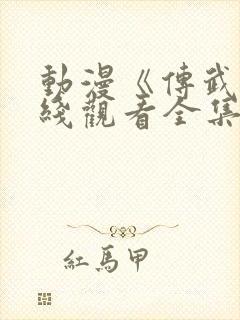 動漫《傳武
綫觀看全集
紅馬甲